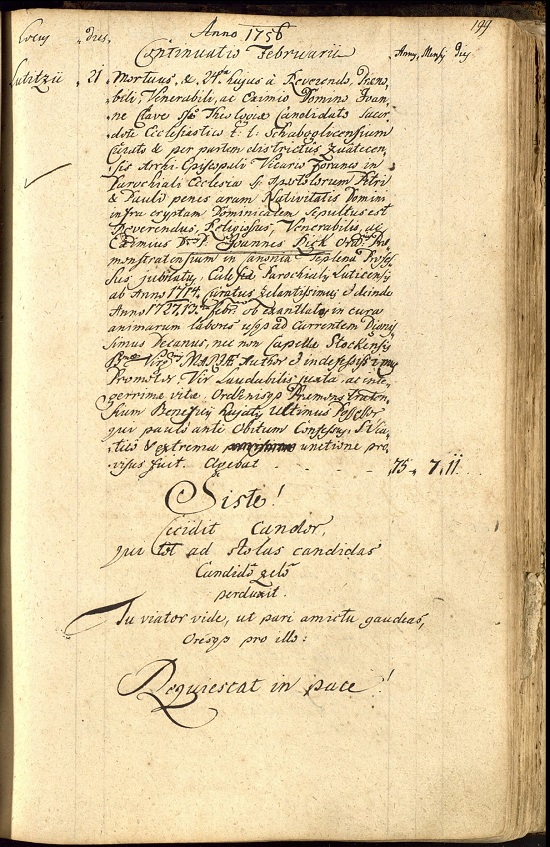 199
Anno 1756
Locus dies
Continuatio Februarii Anny, Mensy dies
Lutitzii 21 Mortuus, & 24ta hujus à Reverendo, Vene-
bili, Venerabili, ac Eximio Domino Joan-
ne Clave Ssae Theologiae Candidato Sacer-
doti Ecclesiastico t: t: Schaboglicensium
Curato & per partem districtus Zuatecen-
sis Archi-Episcopali Vicario foraneo in
Parochiali Ecclesia SS Apostolorum Petri
& Pauli penes aram Nativitatis Domini
infra cryptam Dominicalem sepultus est
Reverendus, Religiosus, Venerabilis, ac
Eximius D. Joannes Pick Ord: Prae-
monstratensium in Canonia Teplena Profes-
sus jubilaty, Ecclesiae Parochialy Luticensy
ab Anno 1714 Curatus zelantissimus & deinde
Anno 1727, 13 Febr: ob exantlatos in cura
animarum labores usque ad currentem Dionis-
simus Decanus, nec non Capellae Stockensis
Virg: MARIAE Author & indefessissimus
Promotor. Vir Laudabilis juxta ac inte-
gerrimae vitae Ordinisque Praemonstraten-
sium Beneficii hujaty Ultimus Possessor
qui paulo ante Obitum Confessus, S Via-
tico & extrema unctione pro-
visus fuit. Agebat 75 7 11
Siste!
Cecidit Candor,
qui tot ad stolas candidas
Candido zelo
perduxit.
Tu viator vide, ut pari amictu gaudeas,
Oresque pro illo:
Requiescat in pace!